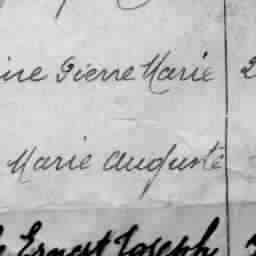 Pierre Marie 2
Marie Auguste
Ernest Joseph